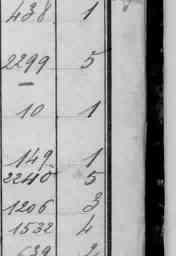 438 1
2299 5
—
10 1
149 1
2240 5
1206 3
1532 4
639 2